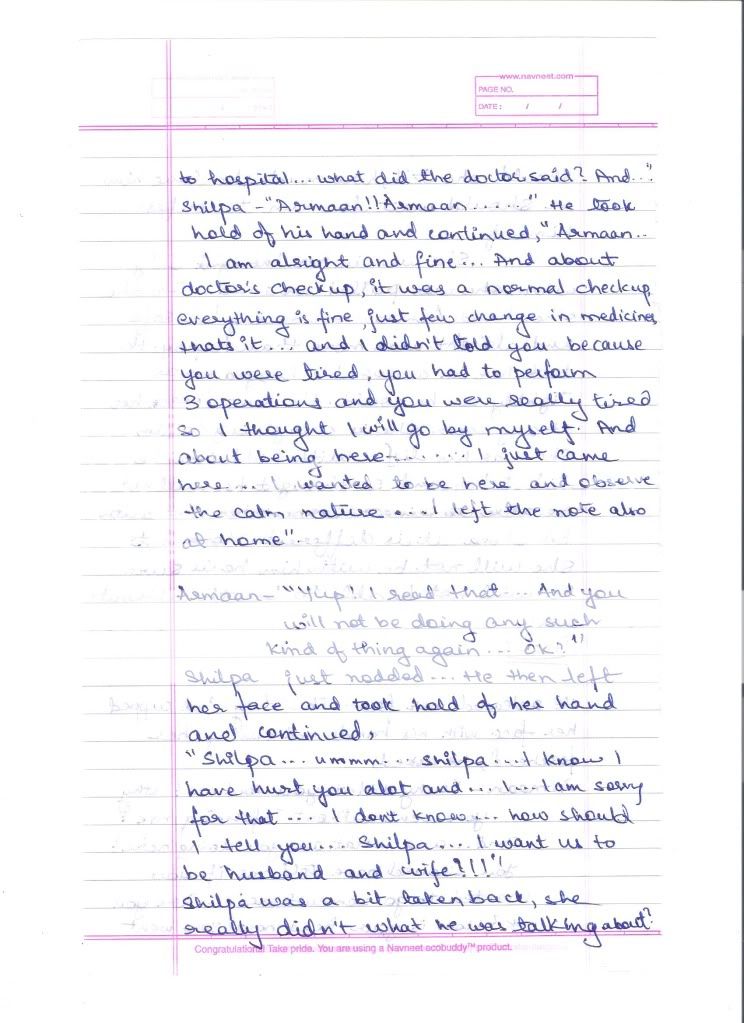 www.navneet.com
PAGE NO.
DATE : / /
to hospital... what did the doctor said? And..."
Shilpa - "Armaan!! Armaan ......" He took
hold of his hand and continued, "Armaan..
I am alright and fine... And about
doctor's checkup, it was a normal checkup,
everything is fine, just few change in medicines,
thats it... and I didn't told you because
you were tired, you had to perform
3 operations and you were really tired
so I thought I will go by myself. And
about being here........ I just came
here.... I wanted to be here and observe
the calm nature .... I left the note also
at home".
Armaan - "Yup! I read that... And you
will not be doing any such
kind of thing again... ok?"
Shilpa just nodded... He then left
her face and took hold of her hand
and continued,
"Shilpa... ummm... shilpa... I know I
have hurt you alot and... I... I am sorry
for that .... I dont know... how should
I tell you... Shilpa... I want us to
be husband and wife?!!!"
Shilpa was a bit taken back, she
really didn't what he was talking about?
Congratulations! Take pride. You are using a Navneet ecobuddy™ product.